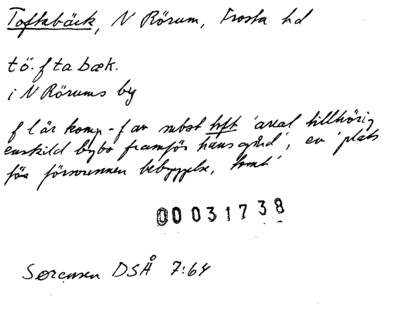 Toftabäck, N Rörum, Frosta hd
tö.ftabæk.
i N Rörums by
f l är komp-f av subst toft 'areal tillhörig
enskild bybo framför hans gård', ev 'plats
för försvunnen bebyggelse, tomt'
00031738
Sørensen DSÅ 7:64